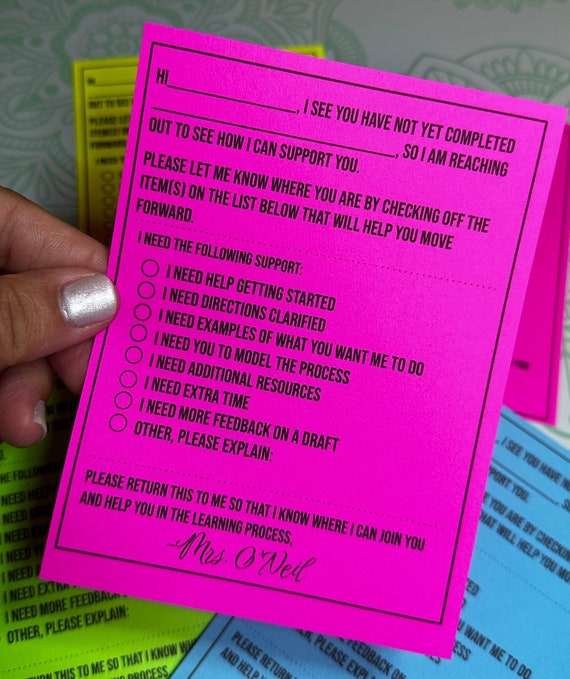 HI_______________, I SEE YOU HAVE NOT YET COMPLETED
_______________, SO I AM REACHING
OUT TO SEE HOW I CAN SUPPORT YOU.
PLEASE LET ME KNOW WHERE YOU ARE BY CHECKING OFF THE
ITEM(S) ON THE LIST BELOW THAT WILL HELP YOU MOVE
FORWARD.
I NEED THE FOLLOWING SUPPORT:
I NEED HELP GETTING STARTED
I NEED DIRECTIONS CLARIFIED
I NEED EXAMPLES OF WHAT YOU WANT ME TO DO
I NEED YOU TO MODEL THE PROCESS
I NEED ADDITIONAL RESOURCES
I NEED EXTRA TIME
I NEED MORE FEEDBACK ON A DRAFT
OTHER, PLEASE EXPLAIN:
PLEASE RETURN THIS TO ME SO THAT I KNOW WHERE I CAN JOIN YOU
AND HELP YOU IN THE LEARNING PROCESS,
-Mrs. O'Neil
OUT TO SEE
PLEASE LET
FORWARD.
THE FOLLOWING
I NEED MORE FEEDBACK
OTHER, PLEASE EXPLAIN:
RETURN THIS TO ME SO THAT I KNOW
, I SEE YOU HAVE
SUPPORT YOU.
YOU ARE BY CHECKING
THAT WILL HELP YOU
WANT ME TO DO
OTHER, PLEASE EXPLAIN
PLEASE RETURN
AND HELP YOU